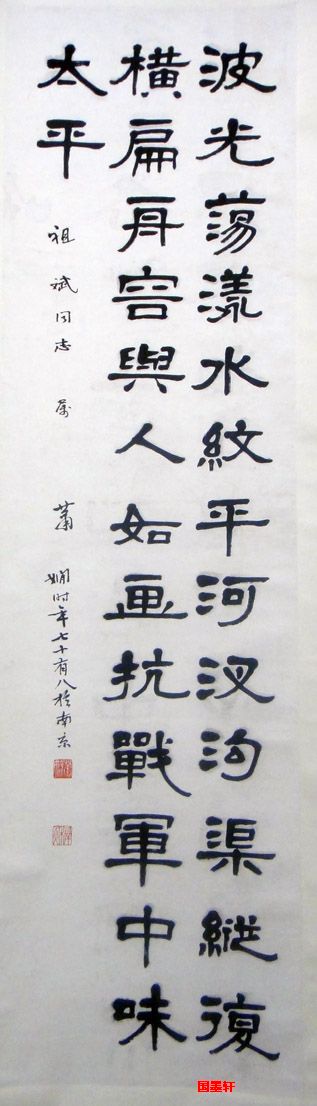 波光荡漾水紋平河汊沟渠縱復
橫扁舟容與人如画抗戰軍中味
太平
祖斌同志屬
蕭嫻时年七十有八於南京
国墨轩